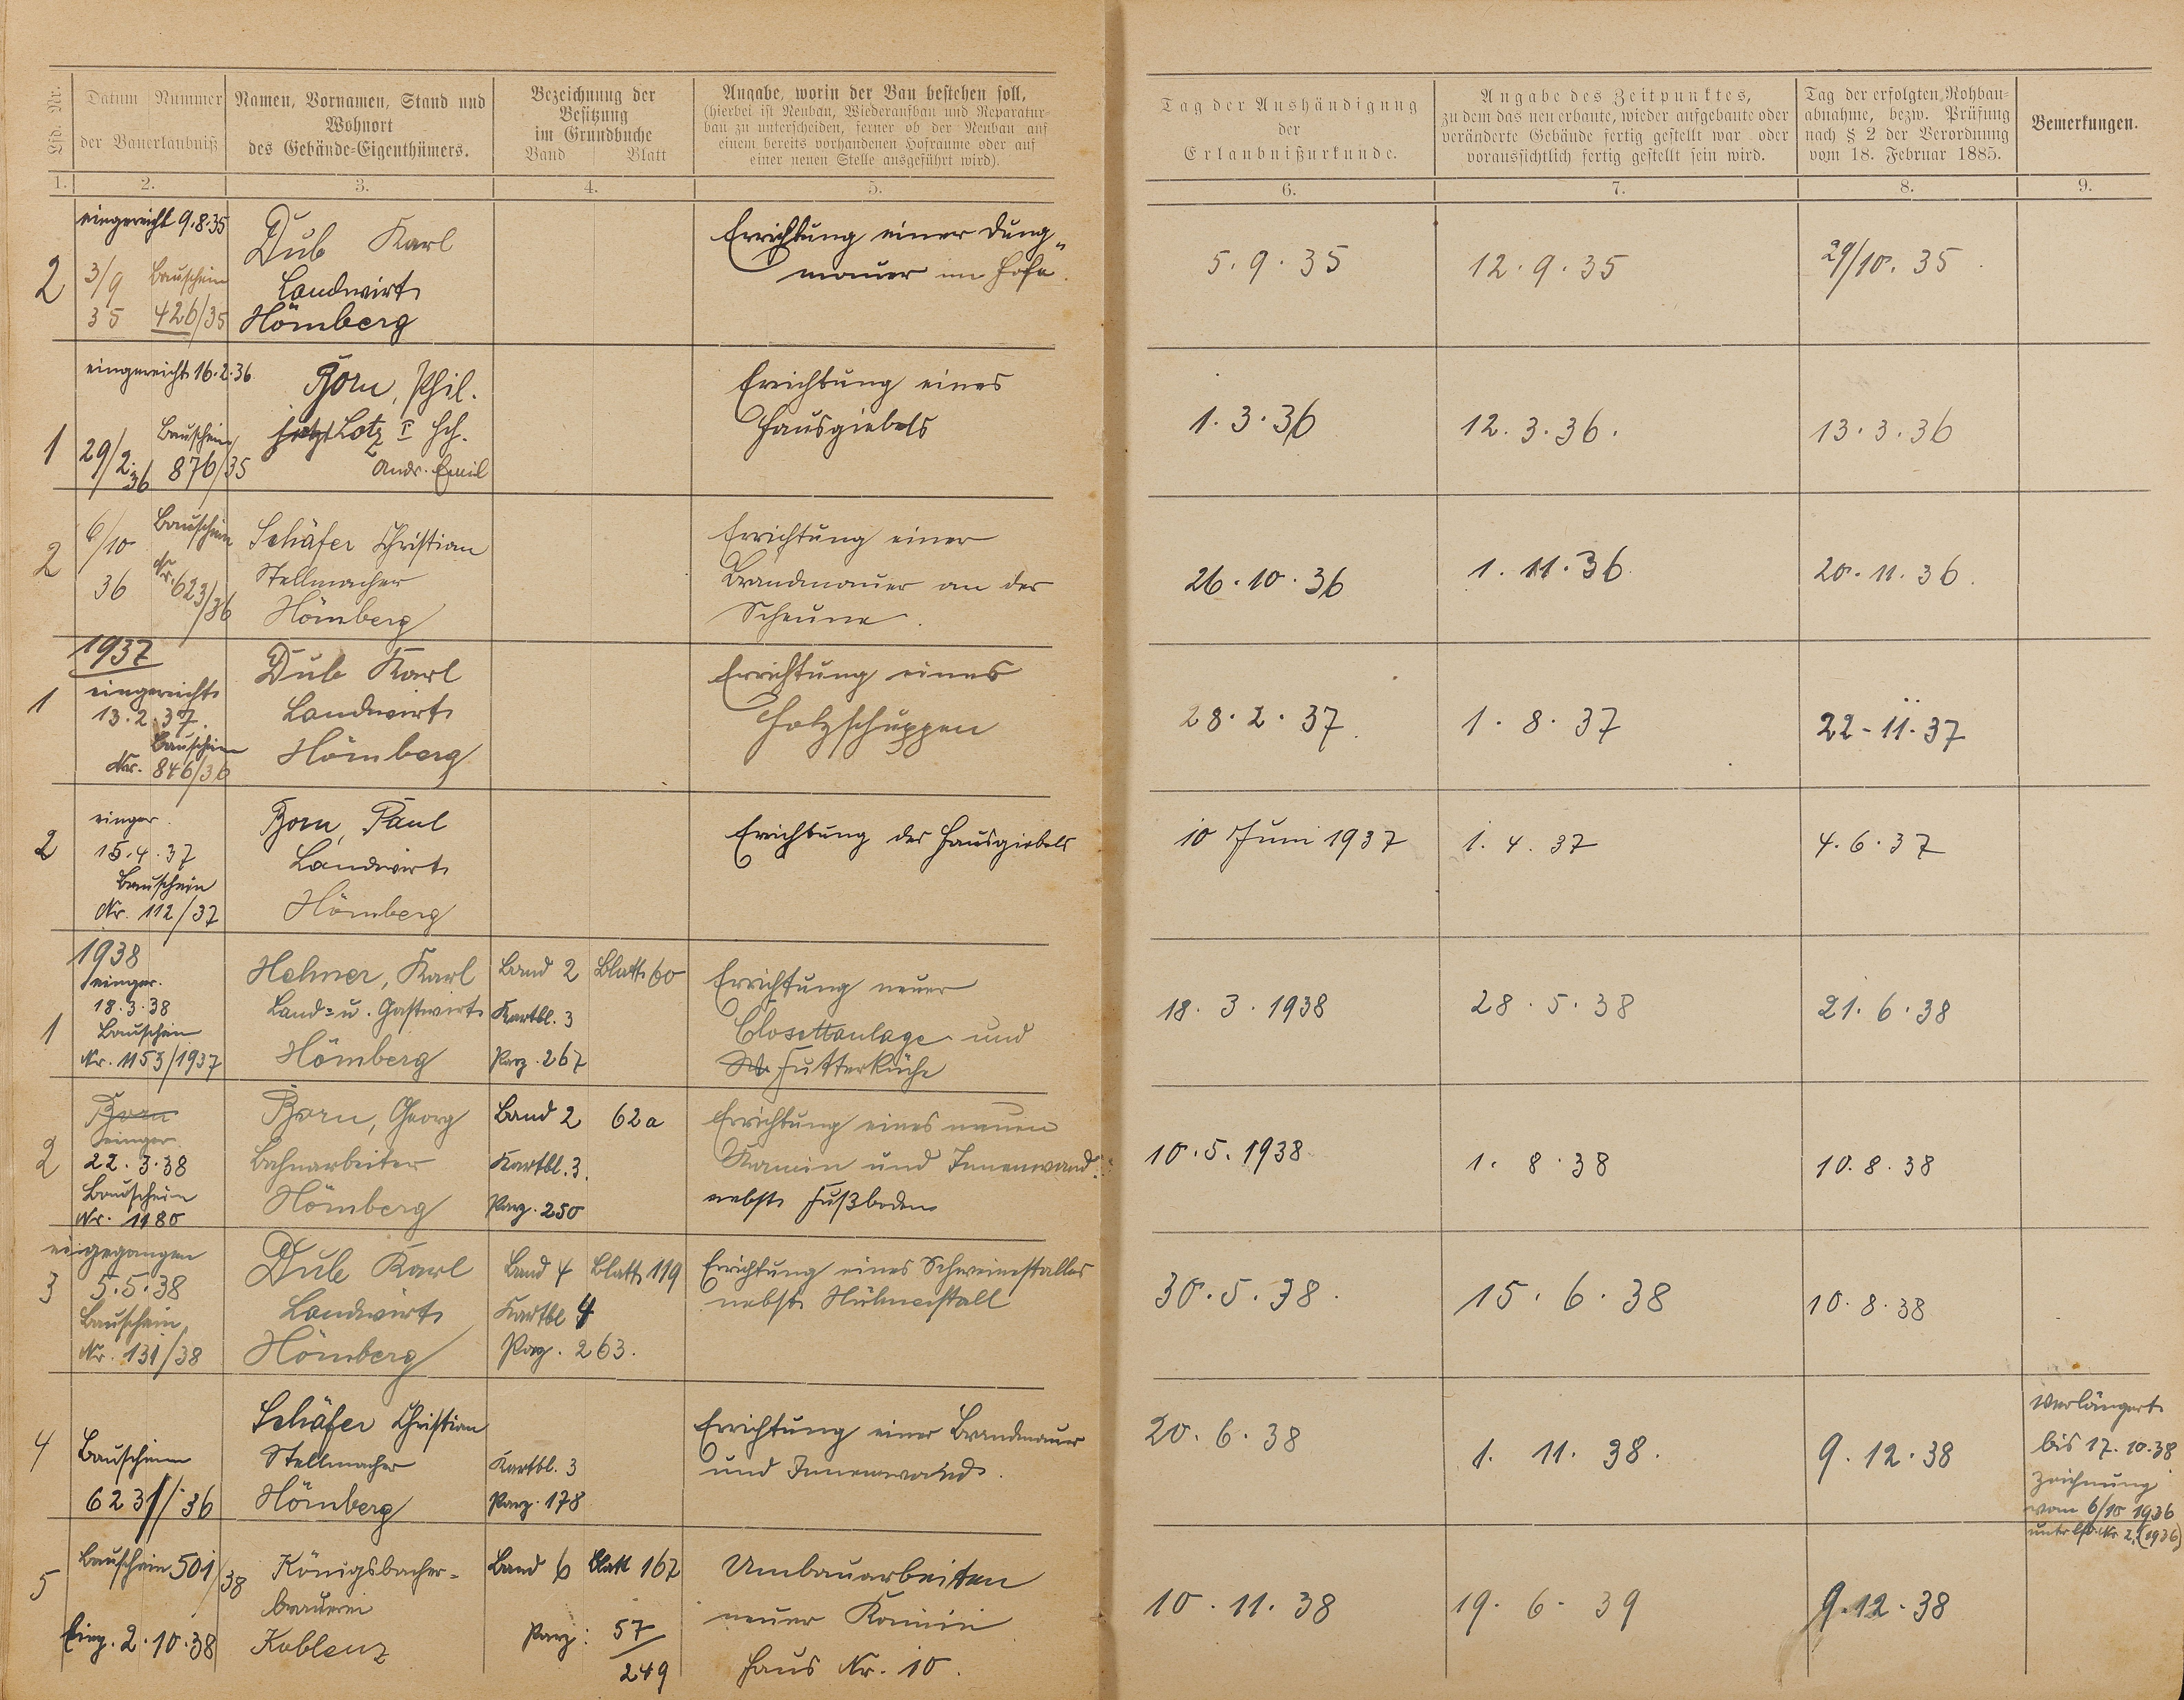 Lfd. Nr.
Datum Nummer
der Bauerlaubniß
Namen, Vornamen, Stand und
Wohnort
des Gebäude-Eigenthümers.
Bezeichnung der
Besitzung
im Grundbuche
Band Blatt
Angabe, worin der Bau bestehen soll,
(hierbei ist Neubau, Wiederaufbau und Reparatur-
bau zu unterscheiden, ferner ob der Neubau auf
einem bereits vorhandenen Hofraume oder auf
einer neuen Stelle ausgeführt wird).
Tag der Aushändigung
der
Erlaubnißurkunde.
Angabe des Zeitpunktes,
zu dem das neu erbaute, wieder aufgebaute oder
veränderte Gebäude fertig gestellt war oder
voraussichtlich fertig gestellt sein wird.
Tag der erfolgten Rohbau-
abnahme, bezw. Prüfung
nach § 2 der Verordnung
vom 18. Februar 1885.
Bemerkungen.
1. 2. 3. 4. 5. 6. 7. 8. 9.
2
eingereicht 9.8.35
3/9 Bauschein
35 426/35
Dub Karl
Landwirt
Hömberg
Errichtung einer Dung-
mauer im Hofe.
5.9.35
12.9.35
29/10.35
1
eingereicht 16.2.36
Bauschein
29/2.36 876/35
Born, Phil.
jetzt Lotz I Hch.
Andr. Emil
Errichtung eines
Hausgiebels
1.3.36
12.3.36.
13.3.36
2
6/10 Bauschein
36 Nr. 623/36
Schäfer Christian
Stellmacher
Hömberg
Errichtung einer
Brandmauer an der
Scheune.
26.10.36
1.11.36
20.11.36.
1937
1
eingereicht
13.2.37.
Bauschein
Nr. 846/36
Dub Karl
Landwirt
Hömberg
Errichtung eines
Holzschuppen
28.2.37.
1.8.37
22-11.37
2
einger.
15.4.37
Bauschein
Nr. 112/37
Born, Paul
Landwirt
Hömberg
Errichtung des Hausgiebels
10 Juni 1937
1.4.37
4.6.37
1938
1
einger.
18.3.38
Bauschein
Nr. 1153/1937
Hehner, Karl
Land- u. Gastwirt
Hömberg
Band 2 Blatt 60
Kartbl. 3
Parz. 267
Errichtung neuer
Closettanlage und
Futterküche
18.3.1938
28.5.38
21.6.38
2
Born
einger.
22.3.38
Bauschein
Nr. 1180
Born, Georg
Bahnarbeiter
Hömberg
Band 2 62a
Kartbl. 3.
Parz. 250
Errichtung eines neuen
Kamin und Innenwand
nebst Fußboden
10.5.1938
1.8.38
10.8.38
3
eigegangen
5.5.38
Bauschein
Nr. 131/38
Dub Karl
Landwirt
Hömberg
Band 4 Blatt 119
Kartbl 4
Parz. 263.
Errichtung eines Schweinestalles
nebst Hühnerstall
30.5.38.
15.6.38
10.8.38
4
Bauschein
623/36
Schäfer Christian
Stellmacher
Hömberg
Kartbl. 3
Parz. 178
Errichtung einer Brandmauer
und Innenwand.
20.6.38
1.11.38.
9.12.38
verlängert
bis 17.10.38
Zeichnung
vom 6/10 1936
unter lfd. Nr. 2. (1936)
5
Bauschein 501/38
Eing. 2.10.38
Königsbacher-
brauerei
Koblenz
Band 6 Blatt 167
Parz: 57/249
Umbauarbeiten
neuer Kamin
Haus Nr. 10.
10.11.38
19.6.39
9.12.38